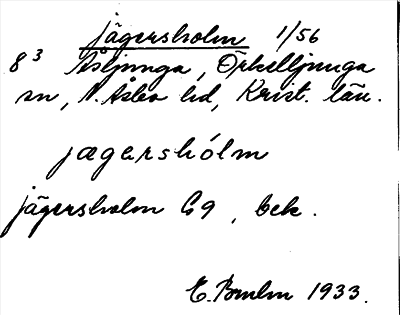 Jägersholm 1/56
8³ Åsljunga, Örkelljunga
sn, N. Åsbo hd, Krist. län.
jægershólm
Jägersholm G9, bek.
1933.